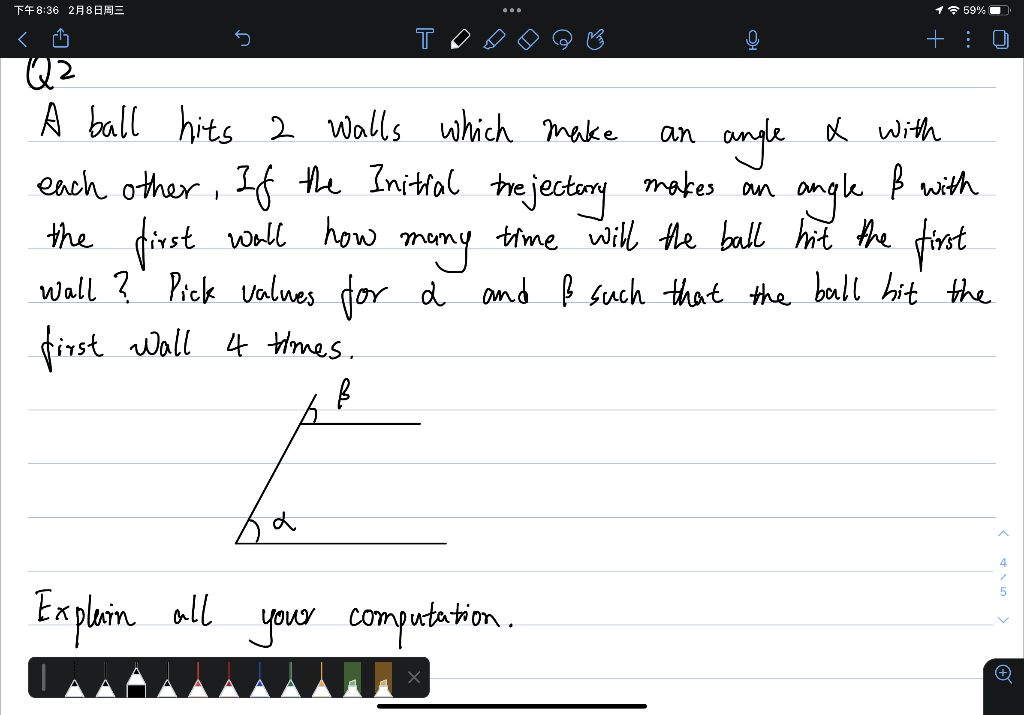 下午8:36 2月8日周三
59%
Q2
A ball hits 2 walls which make an angle α with
each other, If the Initial trejectory makes an angle β with
the first wall how many time will the ball hit the first
wall? Pick values for α and β such that the ball hit the
first wall 4 times.
β
α
4
5
Explain all your computation.